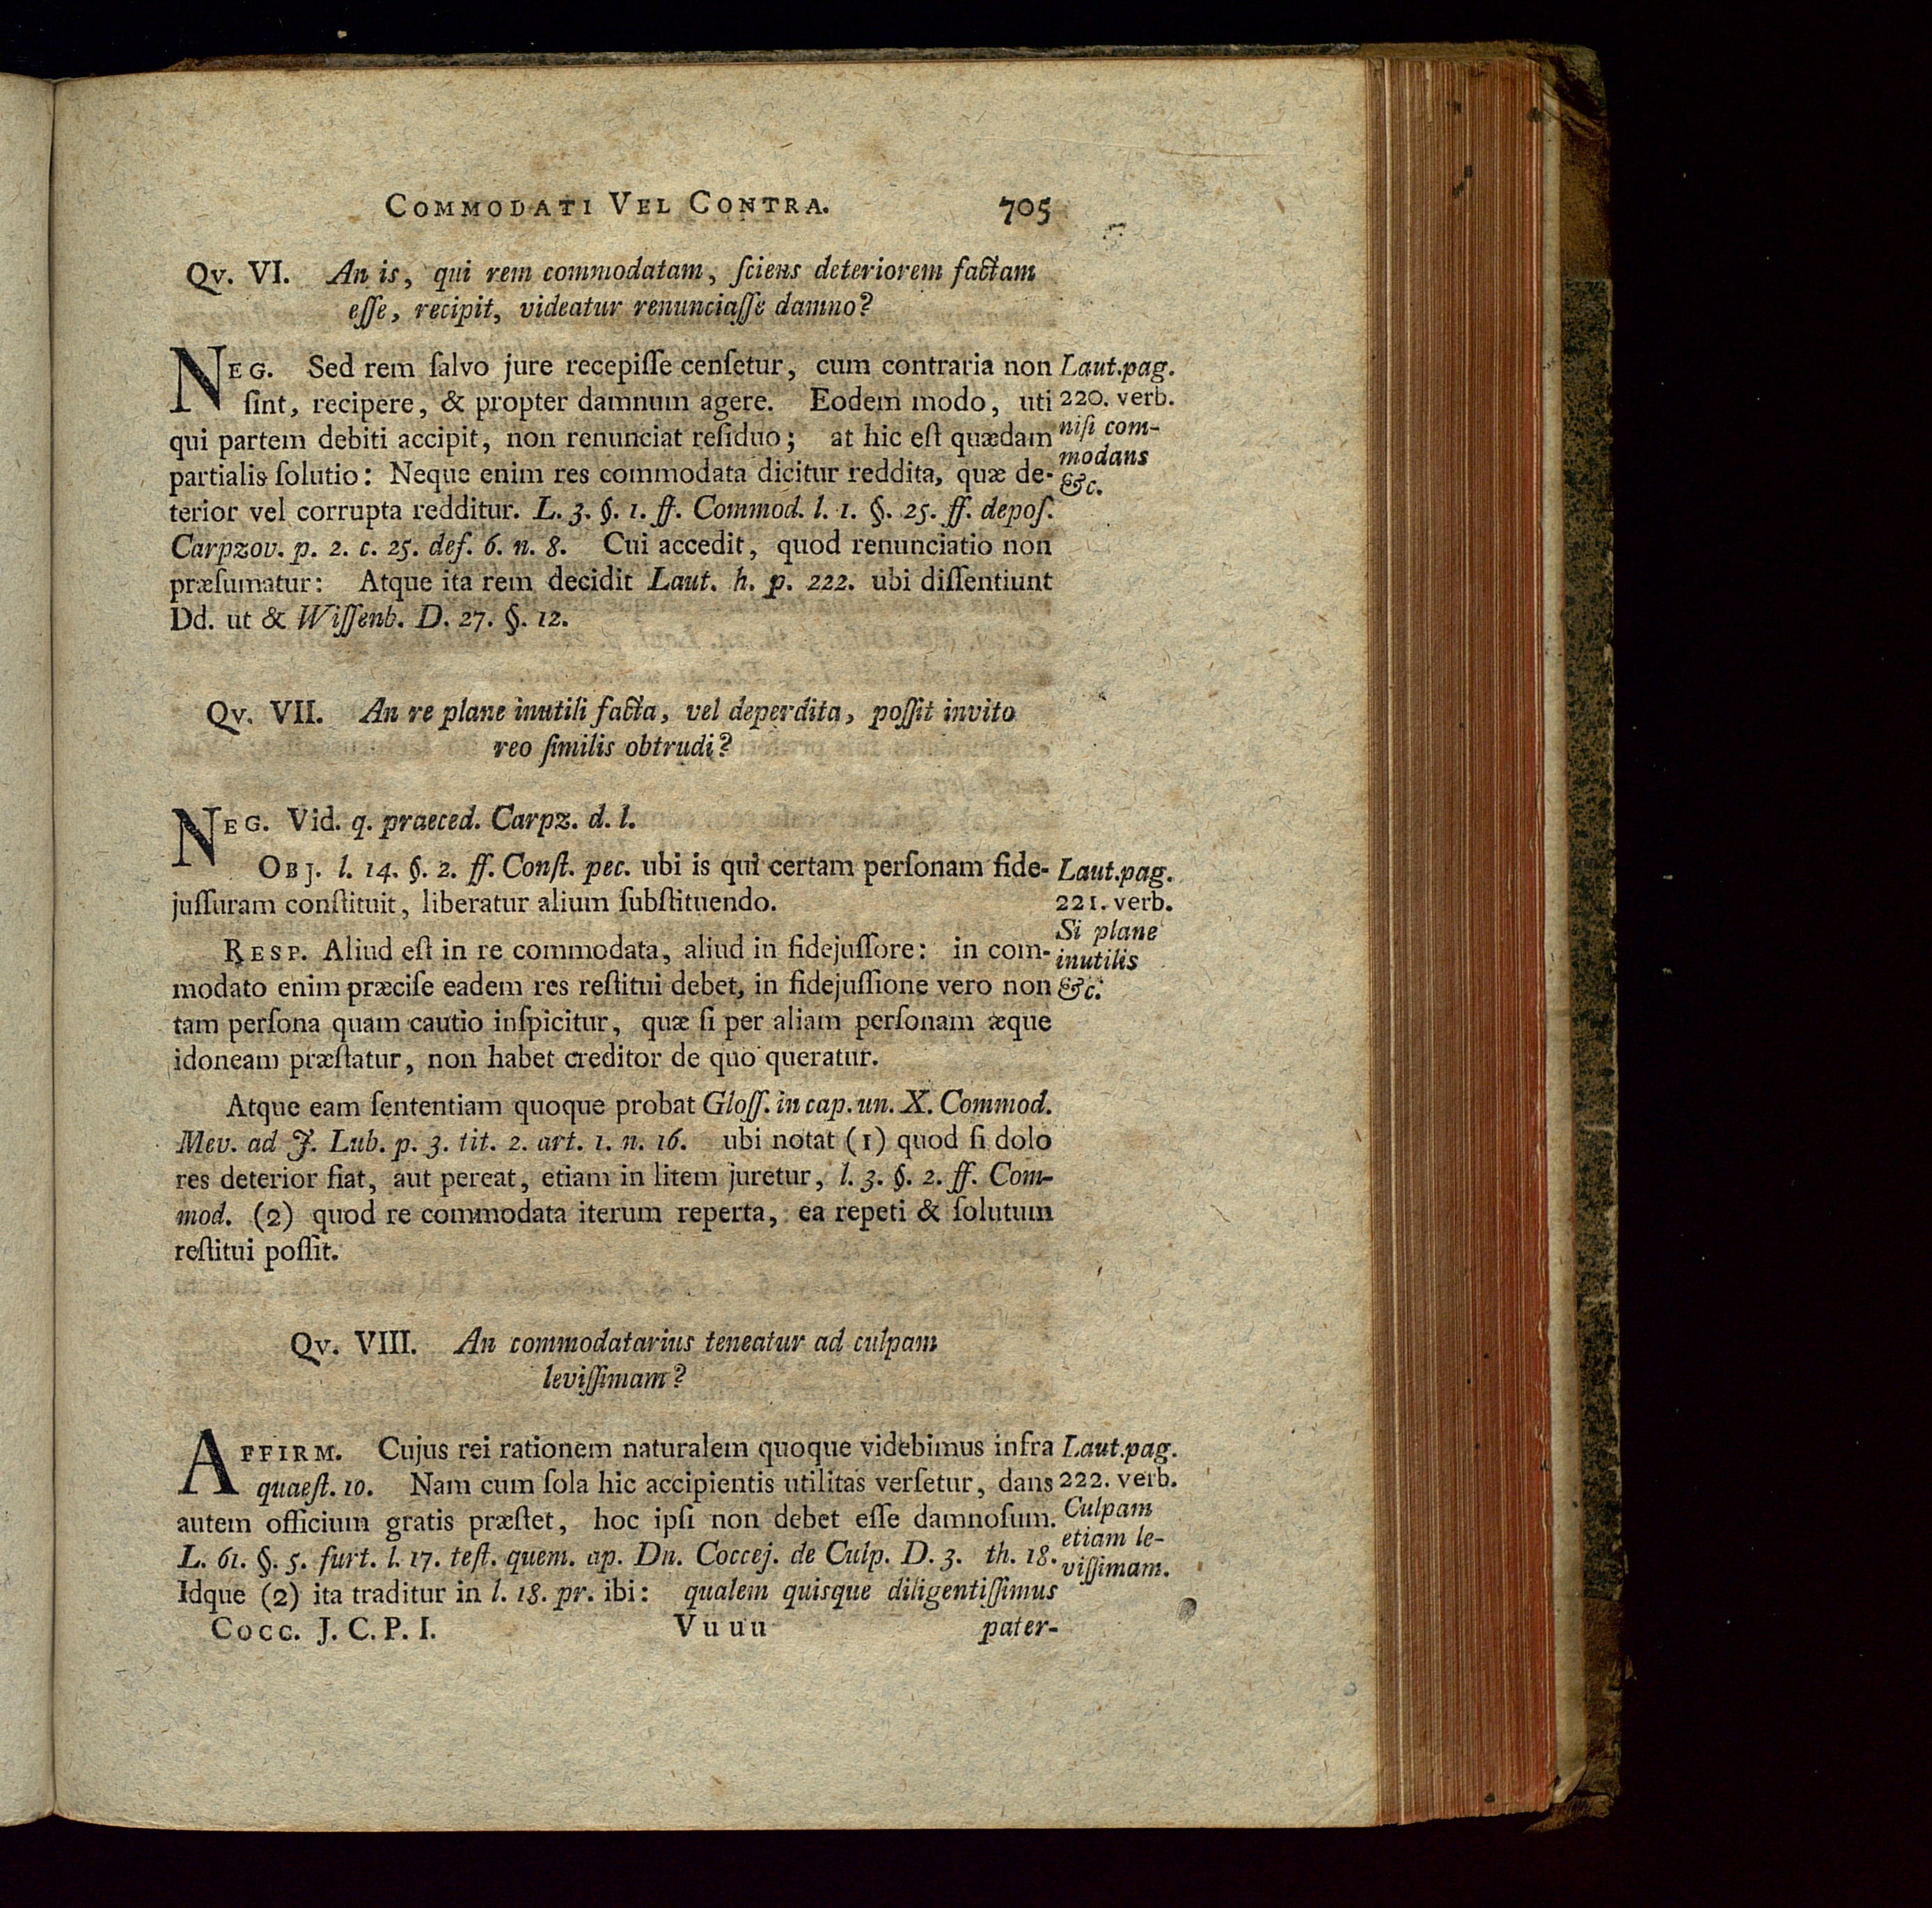 COMMODATI VEL CONTRA. 705
Qv. VI. An is, qui rem commodatam, ſciens deteriorem factam
eſſe, recipit, videatur renunciaſſe damno?
NEG. Sed rem ſalvo jure recepiſſe cenſetur, cum contraria non
ſint, recipere, & propter damnum agere. Eodem modo, uti
qui partem debiti accipit, non renunciat reſiduo; at hic eſt quædam
partialis ſolutio: Neque enim res commodata dicitur reddita, quæ de-
terior vel corrupta redditur. L. 3. §. 1. ff. Commod. l. 1. §. 25. ff. depoſ.
Carpzov. p. 2. c. 25. def. 6. n. 8. Cui accedit, quod renunciatio non
præſumatur: Atque ita rem decidit Laut. h. p. 222. ubi diſſentiunt
Dd. ut & Wiſſenb. D. 27. §. 12.
Laut. pag.
220. verb.
niſi com-
modans
&c.
Qv. VII. An re plane inutili facta, vel deperdita, poſſit invito
reo ſimilis obtrudi?
NEG. Vid. q. praeced. Carpz. d. l.
OBJ. l. 14. §. 2. ff. Conſt. pec. ubi is qui certam perſonam fide-
juſſuram conſtituit, liberatur alium ſubſtituendo.
RESP. Aliud eſt in re commodata, aliud in fidejuſſore: in com-
modato enim præciſe eadem res reſtitui debet, in fidejuſſione vero non
tam perſona quam cautio inſpicitur, quæ ſi per aliam perſonam æque
idoneam præſtatur, non habet creditor de quo queratur.
Laut. pag.
221. verb.
Si plane
inutilis
&c.
Atque eam ſententiam quoque probat Gloſſ. in cap. un. X. Commod.
Mev. ad J. Lub. p. 3. tit. 2. art. 1. n. 16. ubi notat (1) quod ſi dolo
res deterior fiat, aut pereat, etiam in litem juretur, l. 3. §. 2. ff. Com-
mod. (2) quod re commodata iterum reperta, ea repeti & ſolutum
reſtitui poſſit.
Qv. VIII. An commodatarius teneatur ad culpam
leviſſimam?
AFFIRM. Cujus rei rationem naturalem quoque videbimus infra
quaeſt. 10. Nam cum ſola hic accipientis utilitas verſetur, dans
autem officium gratis præſtet, hoc ipſi non debet eſſe damnoſum.
L. 61. §. 5. furt. l. 17. teſt. quem. ap. Dn. Coccej. de Culp. D. 3. th. 18.
Idque (2) ita traditur in l. 18. pr. ibi: qualem quisque diligentiſſimus
Laut. pag.
222. verb.
Culpam
etiam le-
viſſimam.
COCC. J. C. P. I. Vuuu pater-